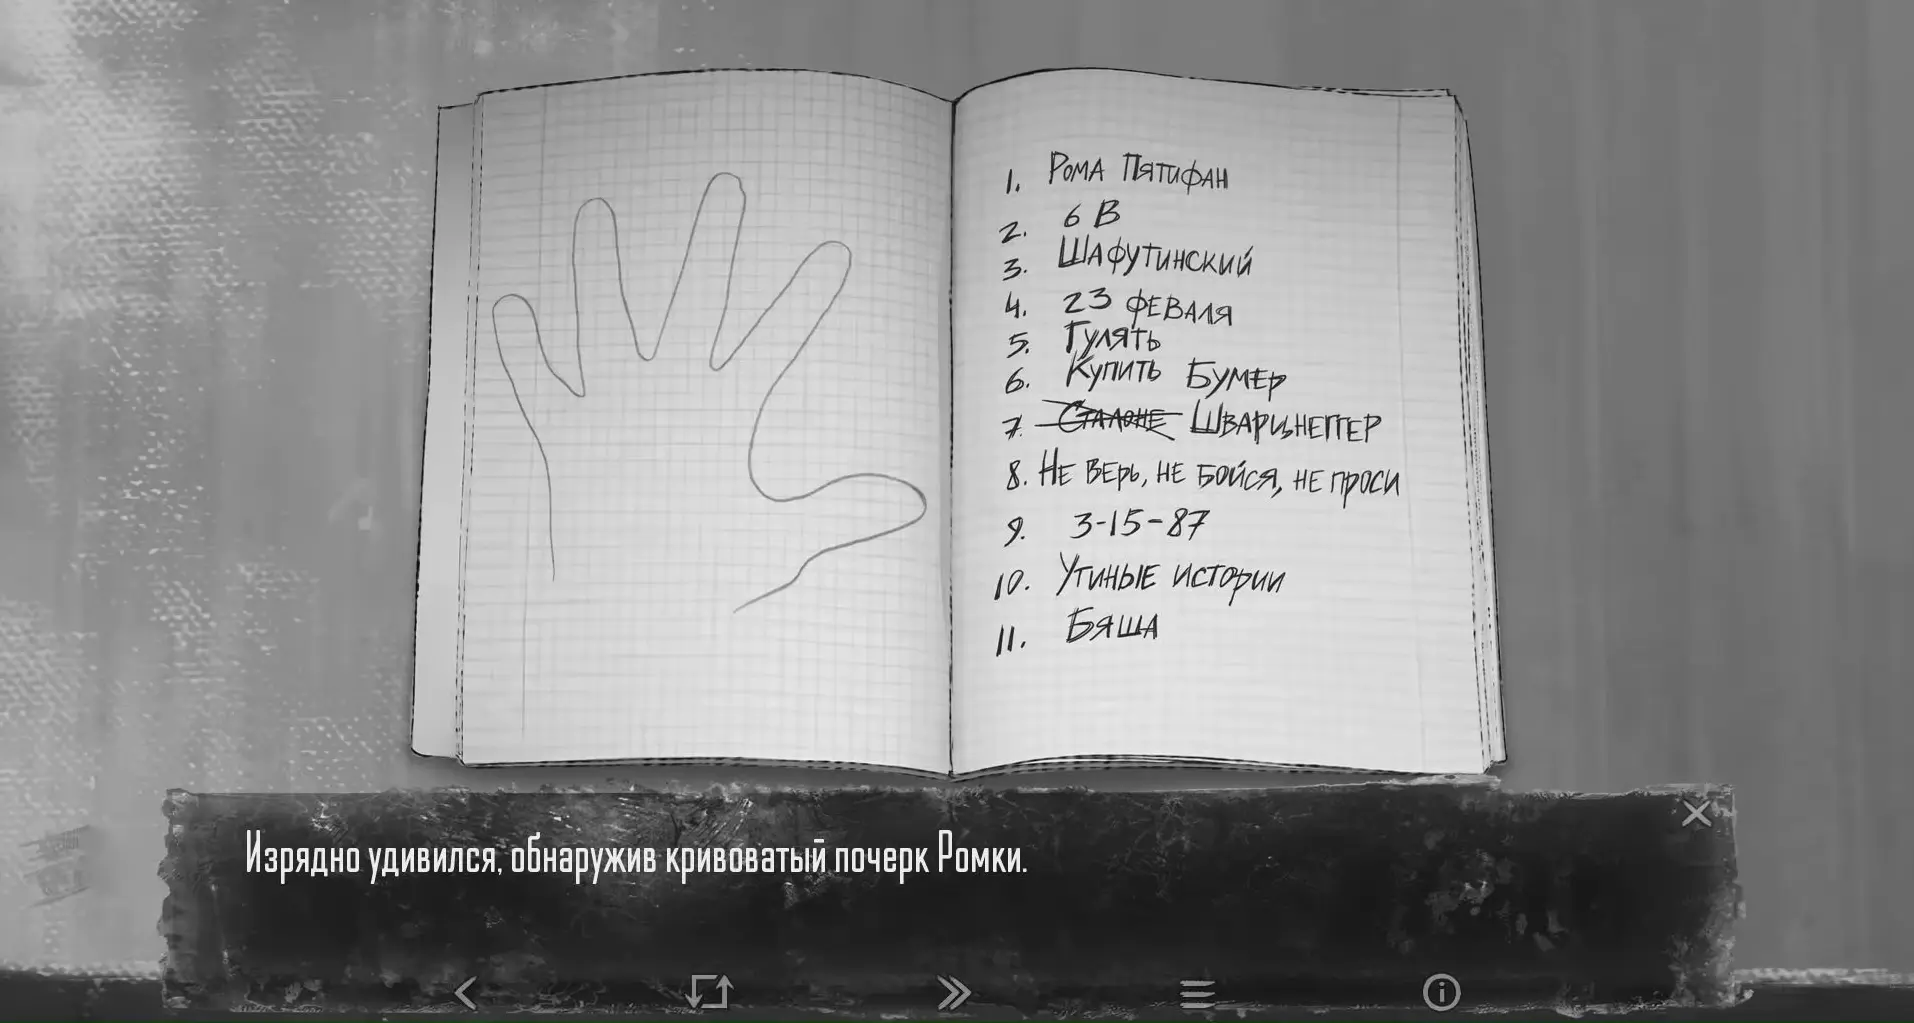 1. Рома Пятифан
2. 6 В
3. Шафутинский
4. 23 феваля
5. Гулять
6. Купить Бумер
7. Сталоне Шварцнеггер
8. Не верь, не бойся, не проси
9. 3-15-87
10. Утиные истории
11. Бяша
Изрядно удивился, обнаружив кривоватый почерк Ромки.